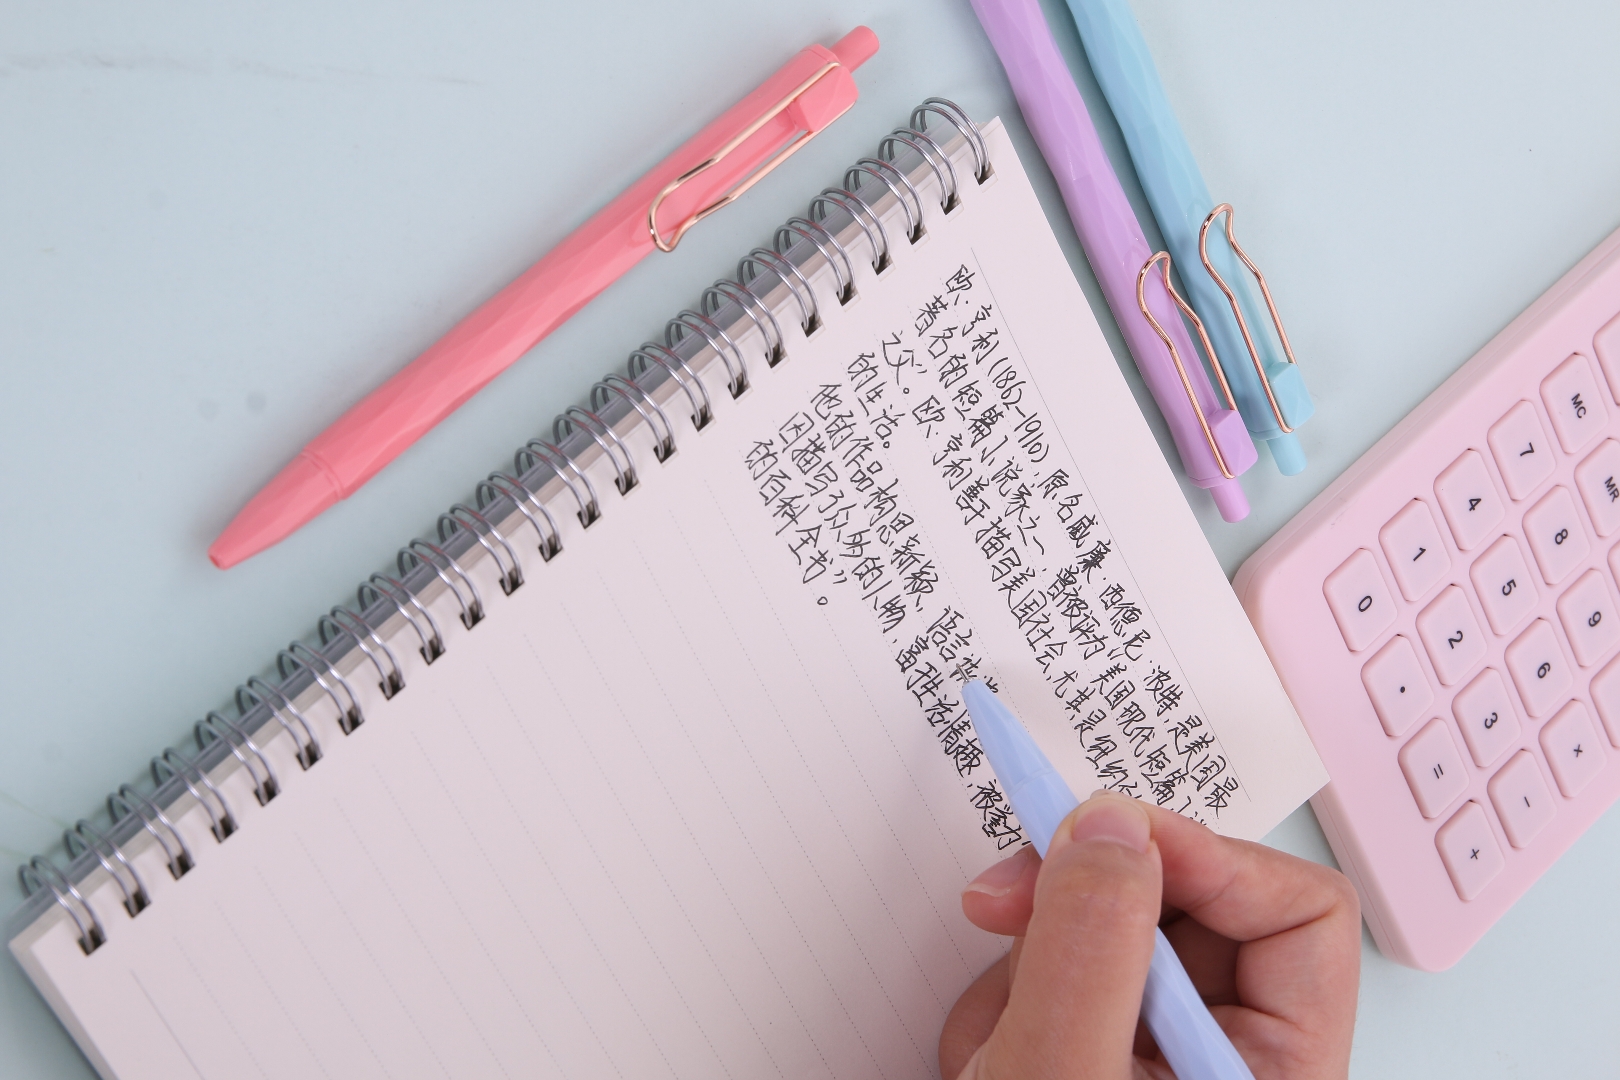 欧.亨利(1862-1910),原名威廉.西德尼.波特,是美国最
著名的短篇小说家之一,曾被评为"美国现代短篇小说
之父"。欧.亨利善于描写美国社会尤其是纽约
的生活。
他的作品构思新颖,语言
因描写了众多的人物,富于生活情趣,被誉为
的百科全书"。
MC
MR
7
8
9
4
5
6
1
2
3
0
.
=
+
-
×